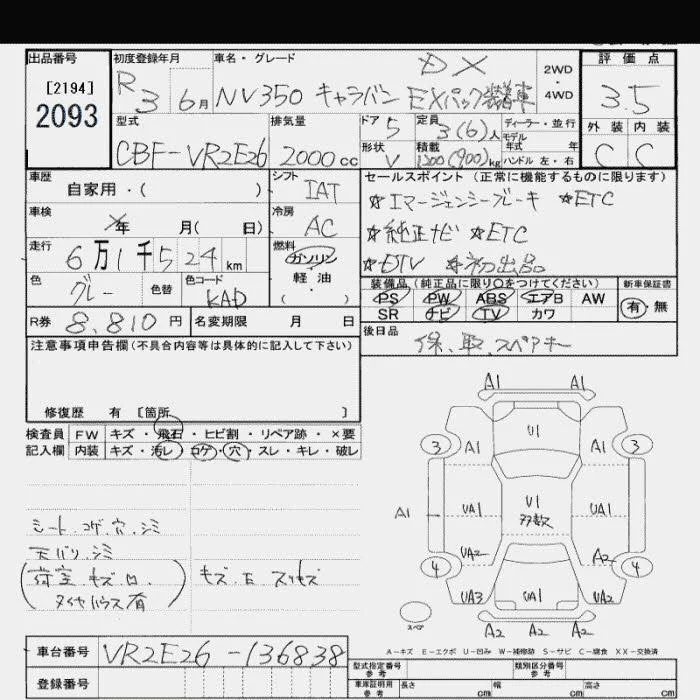 出品番号 初度登録年月 車名・グレード DX 2WD・4WD 評価点
[2194]
2093
R3 6月 NV350 キャラバン EXパック装着車 3.5
型式 排気量 ドア 5 定員 3(6)人 ディーラー・並行 外装 内装
モデル年式 年
CBF-VR2E26 2000cc 形状 V 積載 1200(900)kg ハンドル 左・右 C C
車歴 シフト セールスポイント (正常に機能するものに限ります)
自家用・( ) IAT ☆エマージェンシーブレーキ ☆ETC
車検 年 月( 日) 冷房 AC ☆純正ナビ ☆ETC
走行 6万1千524km 燃料 ガソリン ☆DTV ☆初出品
軽油
・( )
色 グレー 色替 色コード KAD 装備品(純正品に限り○をつけてください) 新車保証書
PS PW ABS エアB AW 有・無
SR ナビ TV カワ
R券 8,810円 名変期限 月 日 後日品
保、取、スペアキー
注意事項申告欄(不具合内容等は具体的に記入して下さい)
修復歴 有 [箇所 ]
検査員 FW キズ・飛石・ヒビ割・リペア跡・×要
記入欄 内装 キズ・汚レ・コゲ・穴・スレ・キレ・破レ
シート コゲ.穴.シミ
天バリ.シミ
(荷室 キズ.凹. キズ.E スリキズ
タイヤハウス有)
A1 A1
3 A1 U1 A1 3
A1 UA1 U1 多数 UA1
UA2 A2
4 4
UA3 UA1 UA2
スペア A2 A2 A2
A-キズ E-エクボ U-凹み W-補修跡 S-サビ C-腐食 XX-交換済
車台番号 VR2E26-136838
型式指定番号 参考 類別区分番号 参考
登録番号 車庫証明用 参考 長さ cm 幅 cm 高さ cm